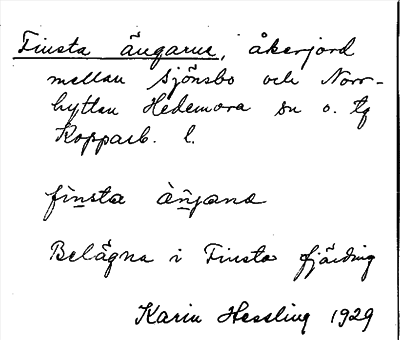 Finsta ängarna, åkerjord
mellan Sjönsbo och Norr-
hyttan Hedemora sn o. tg
Kopparb. l.
finsta àŋjana
Belägna i Finsta fjärding
Karin Hessling 1929